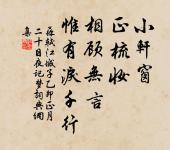 小軒窗
正梳妝
相顧無言
惟有淚千行
蘇軾江城子乙卯正月
二十日夜記夢詞與網
集